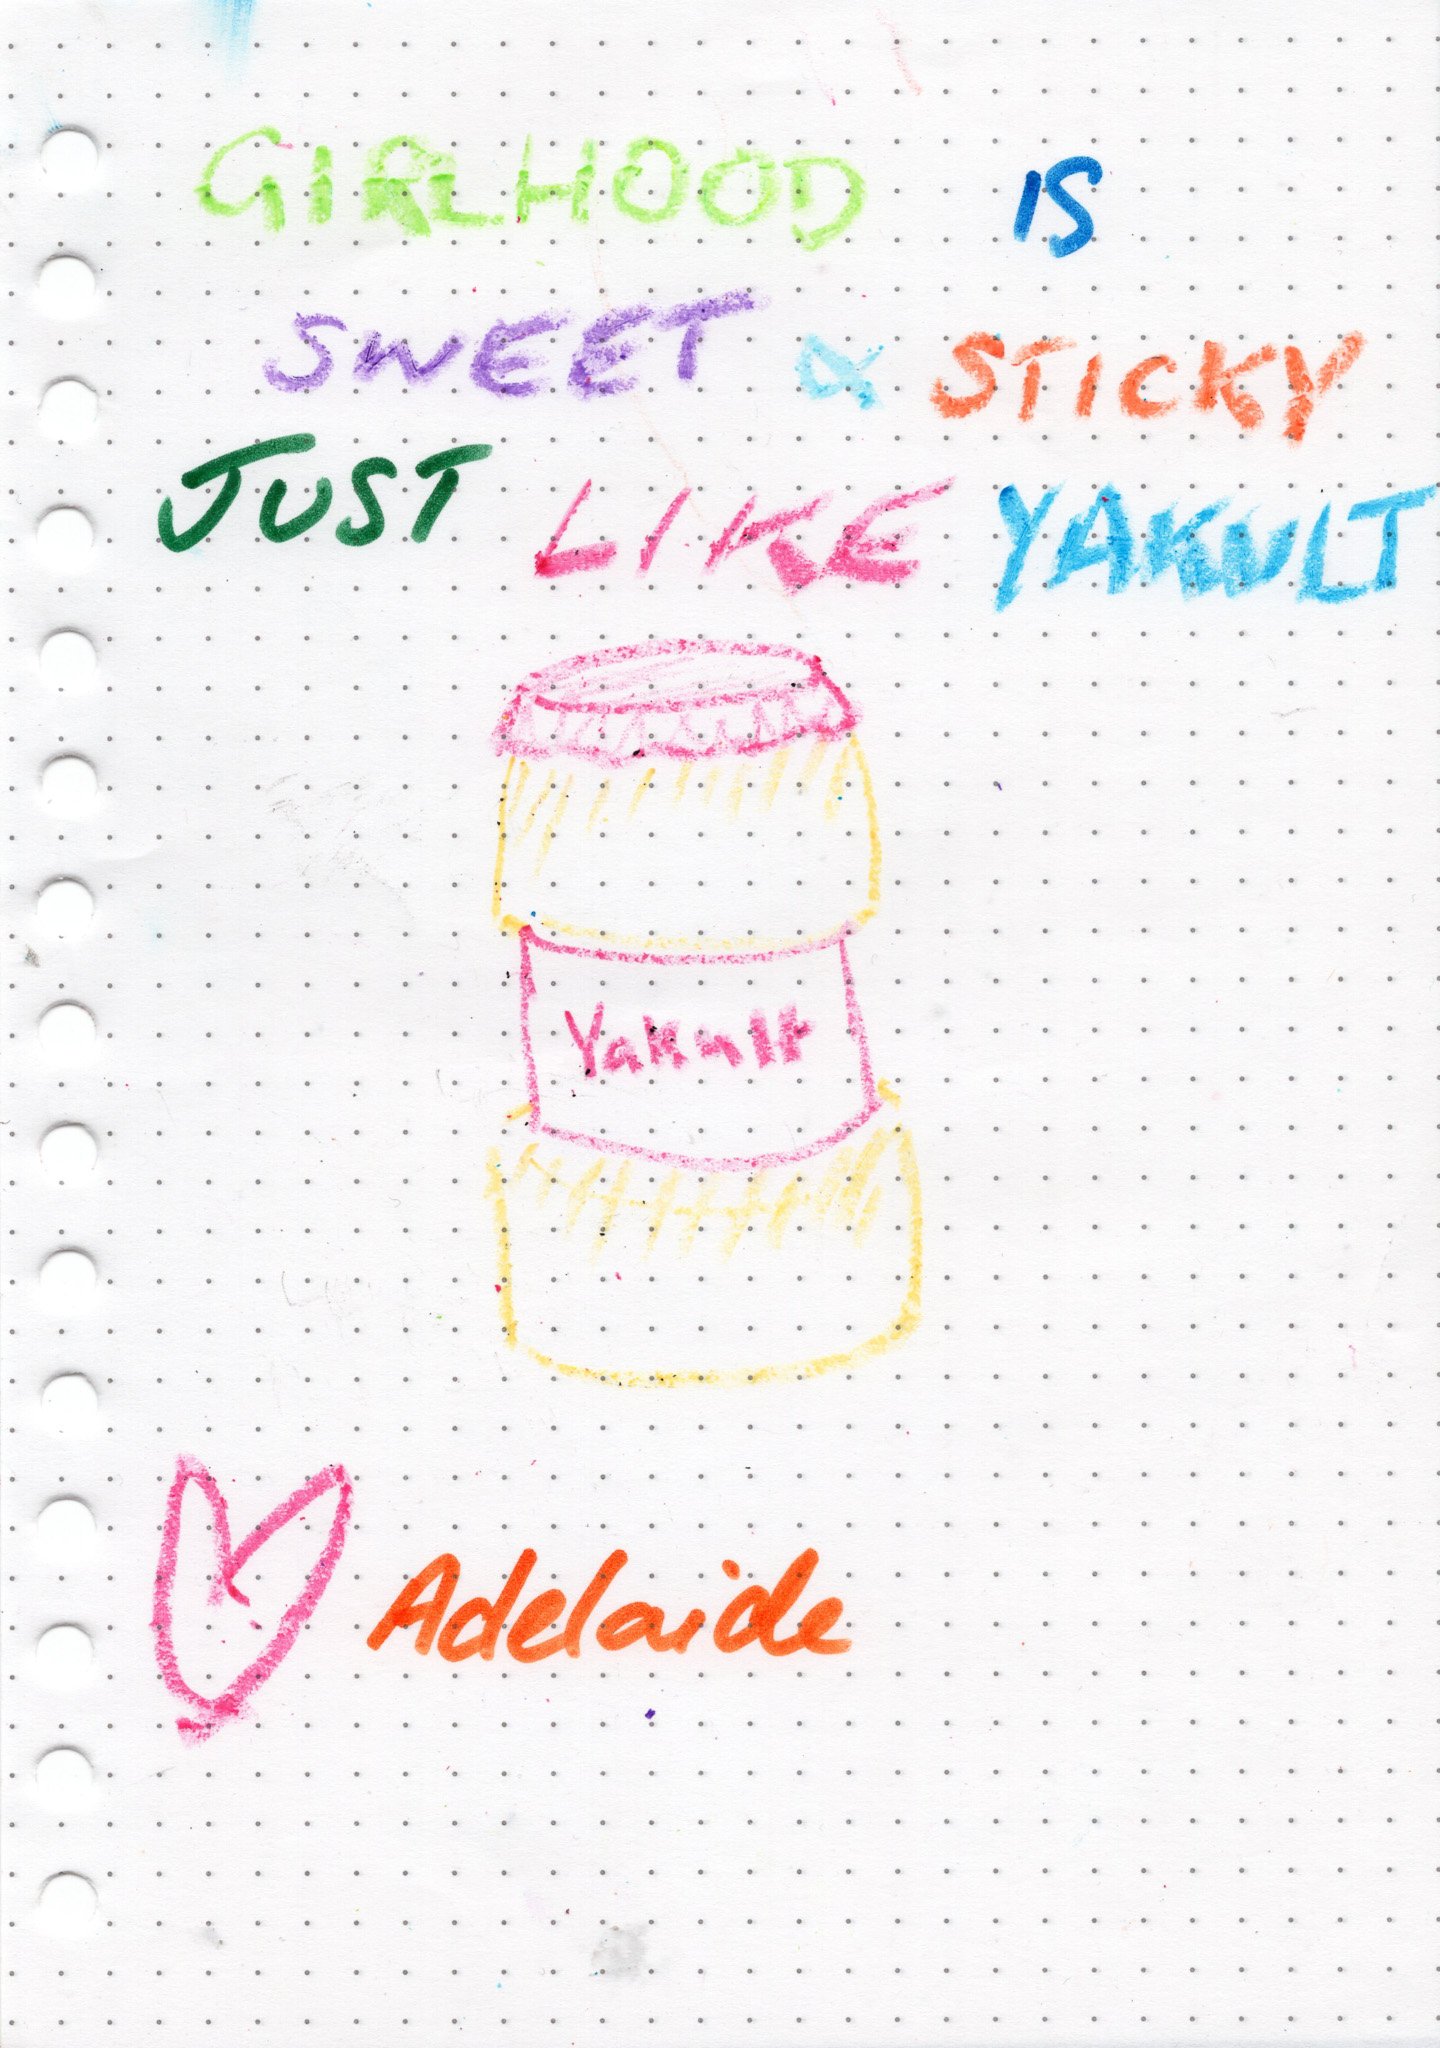 GIRLHOOD IS
SWEET & STICKY
JUST LIKE YAKULT
Yakult
Adelaide